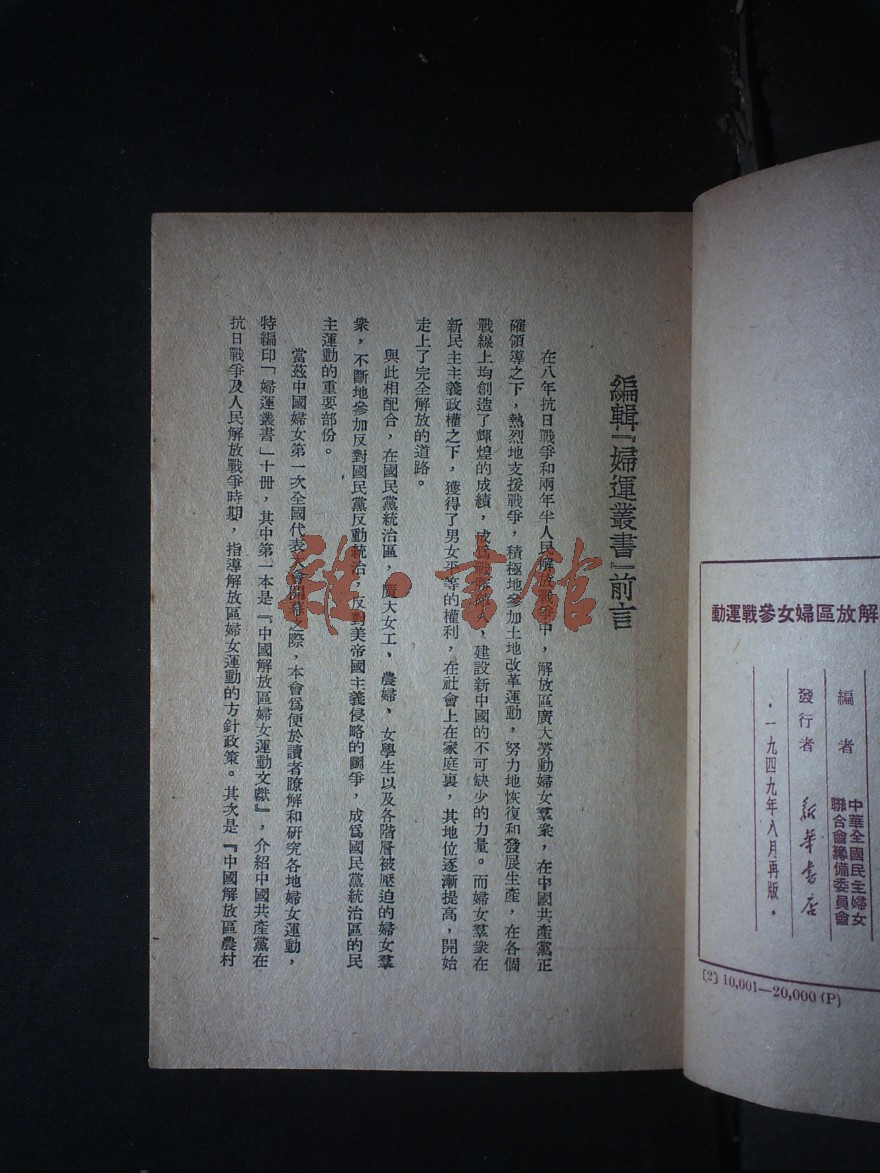 解放區婦女參戰運動
編者
中華全國民主婦女
聯合會籌備委員會
發行者
新華書店
·一九四九年八月再版·
〔2〕10,001—20,000(P)
編輯『婦運叢書』前言
在八年抗日戰爭和兩年半人民解放戰爭中，解放區廣大勞動婦女羣衆，在中國共產黨正
確領導之下，熱烈地支援戰爭，積極地參加土地改革運動，努力地恢復和發展生產，在各個
戰線上均創造了輝煌的成績，成爲戰勝敵人、建設新中國的不可缺少的力量。而婦女羣衆在
新民主主義政權之下，獲得了男女平等的權利，在社會上在家庭裏，其地位逐漸提高，開始
走上了完全解放的道路。
與此相配合，在國民黨統治區，廣大女工、農婦、女學生以及各階層被壓迫的婦女羣
衆，不斷地參加反對國民黨反動統治，反對美帝國主義侵略的鬭爭，成爲國民黨統治區的民
主運動的重要部份。
當茲中國婦女第一次全國代表大會開幕之際，本會爲便於讀者瞭解和研究各地婦女運動，
特編印「婦運叢書」十冊，其中第一本是『中國解放區婦女運動文獻』，介紹中國共產黨在
抗日戰爭及人民解放戰爭時期，指導解放區婦女運動的方針政策。其次是『中國解放區農村
雜·書館